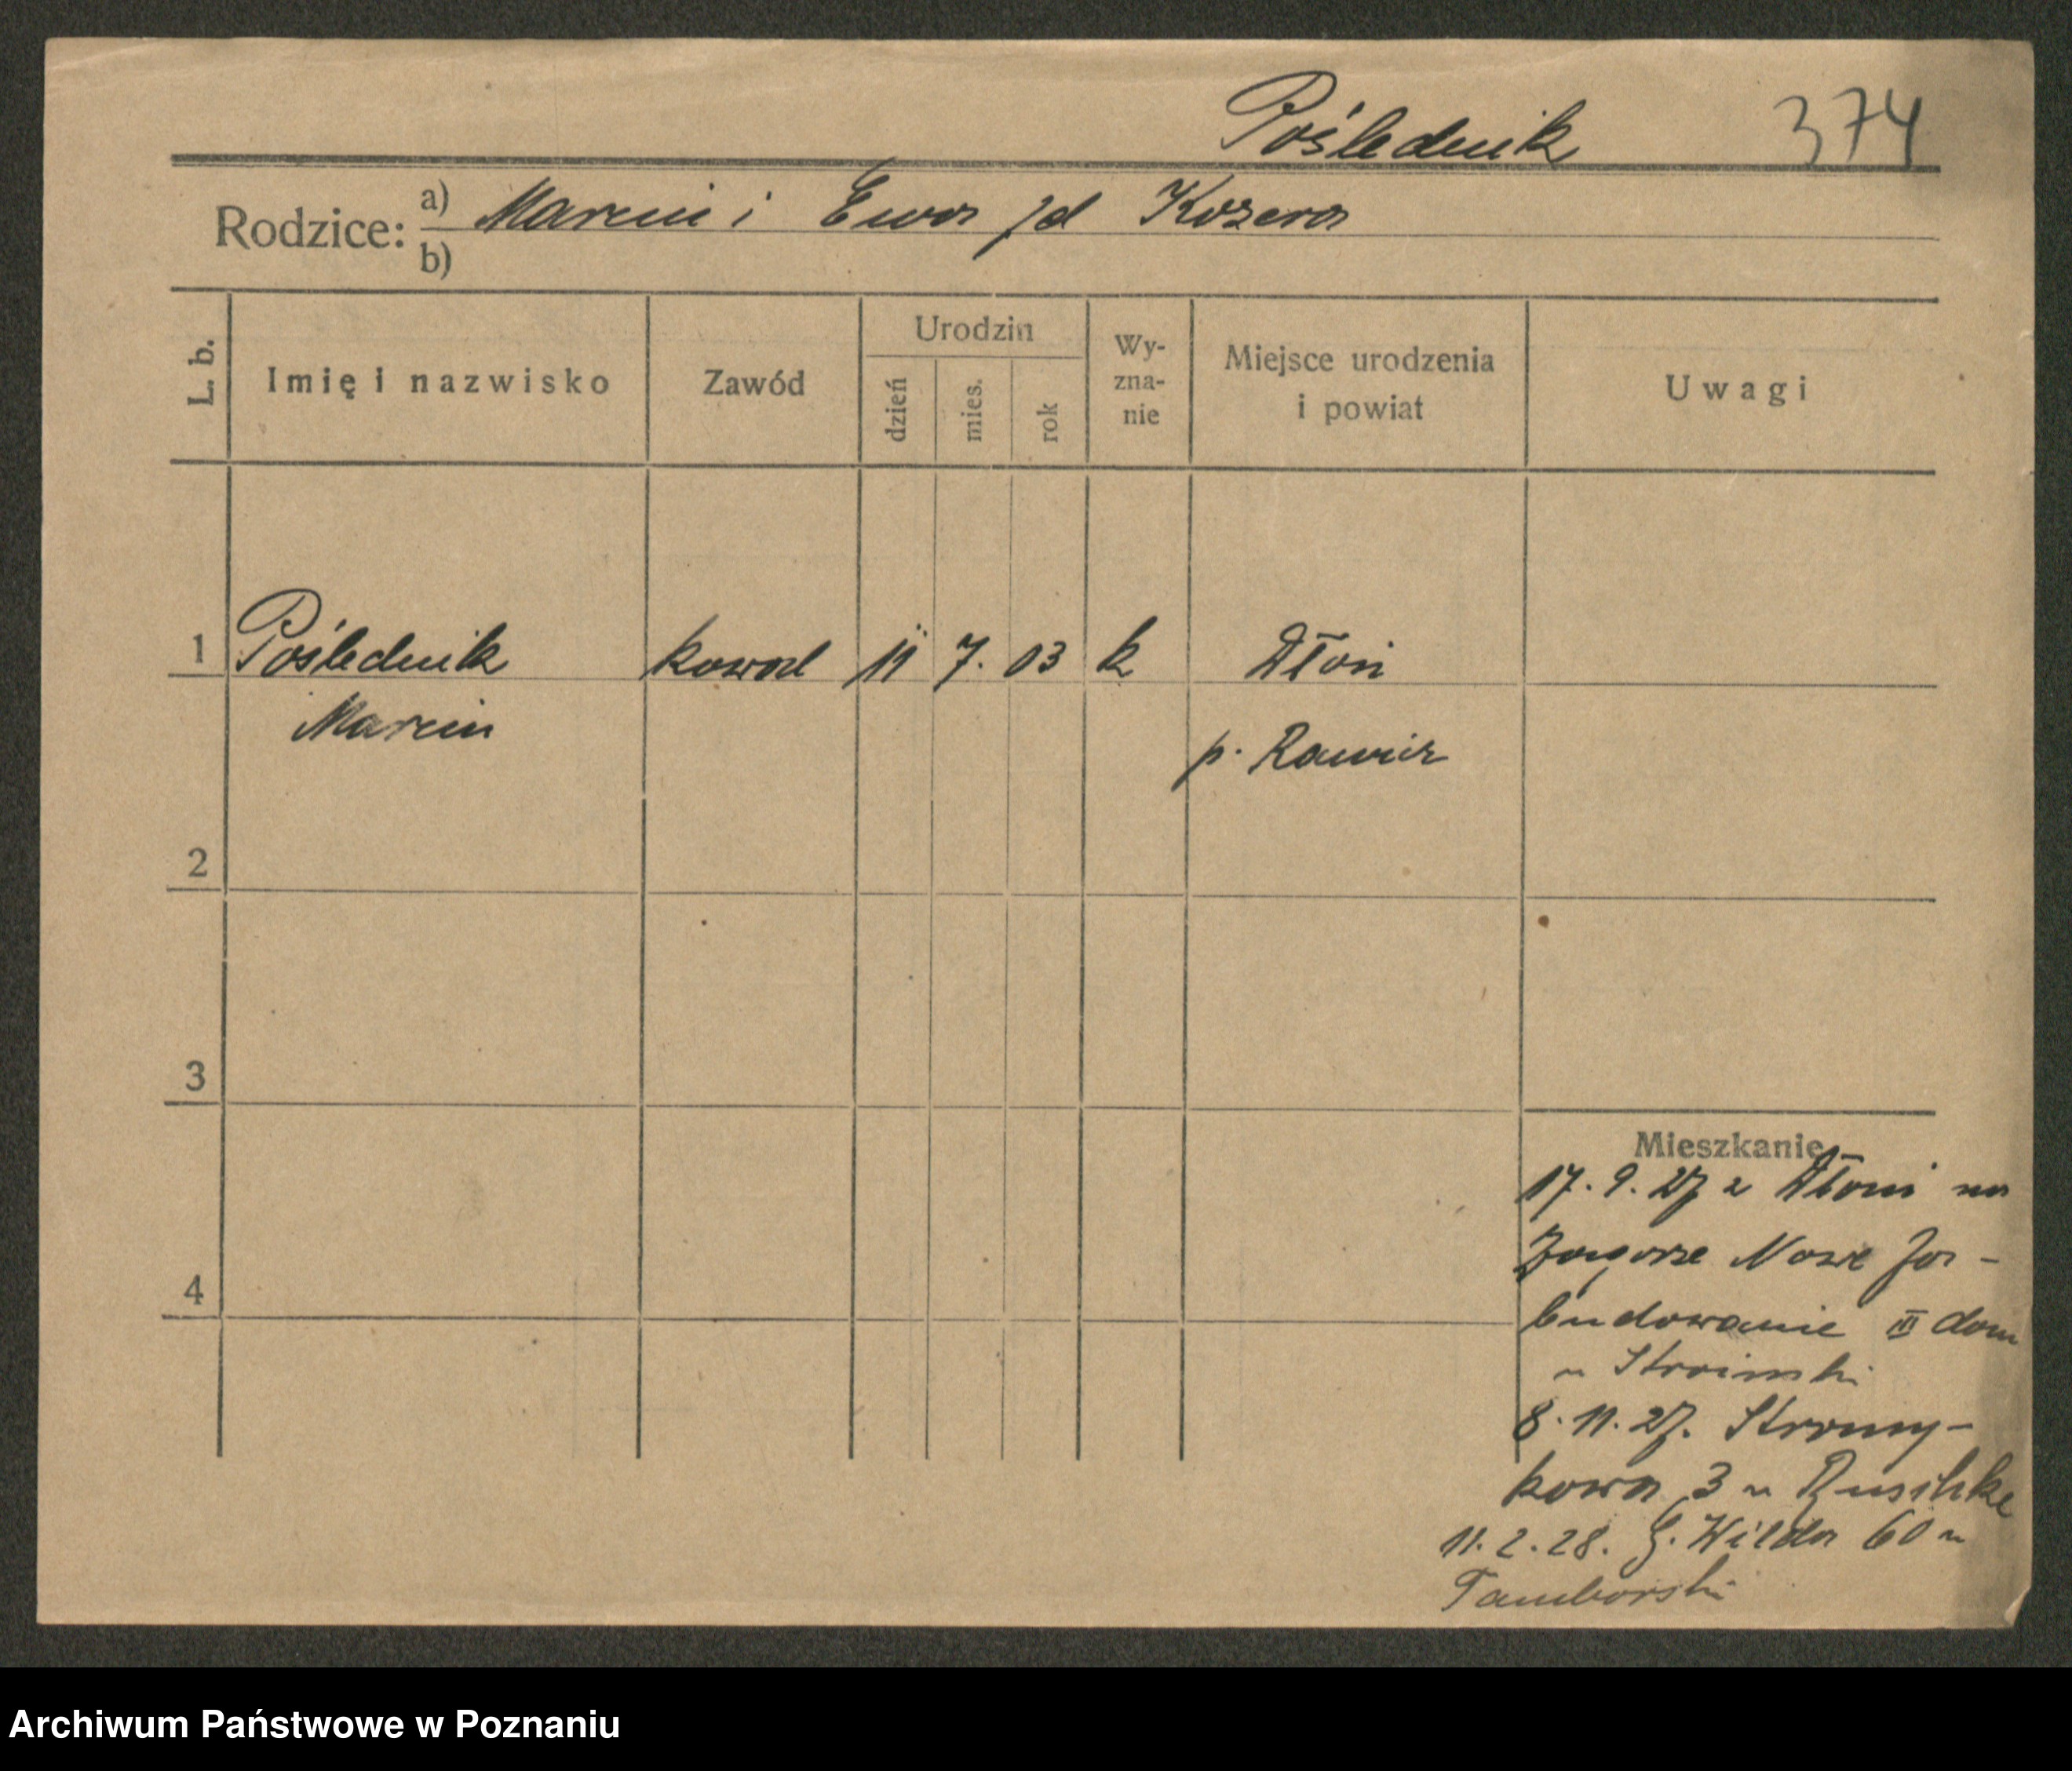 Poślednik 374
Rodzice: a) Marcin i Ewa zd Kozera
b)
L. b. Imię i nazwisko Zawód Urodzin dzień mies. rok Wy-zna-nie Miejsce urodzenia i powiat Uwagi
1 Poślednik kowal 11 7. 03 k Dłoń
Marcin p. Rawicz
2
3
4
Mieszkanie
17. 9. 27 z Dłoni na
Zagórze Nowe Za-
budowanie III dom
u
8. 11. 27. Strumy-
kowa 3 u
11. 2. 28. G. Wilda 60 u
Tamborski
Archiwum Państwowe w Poznaniu